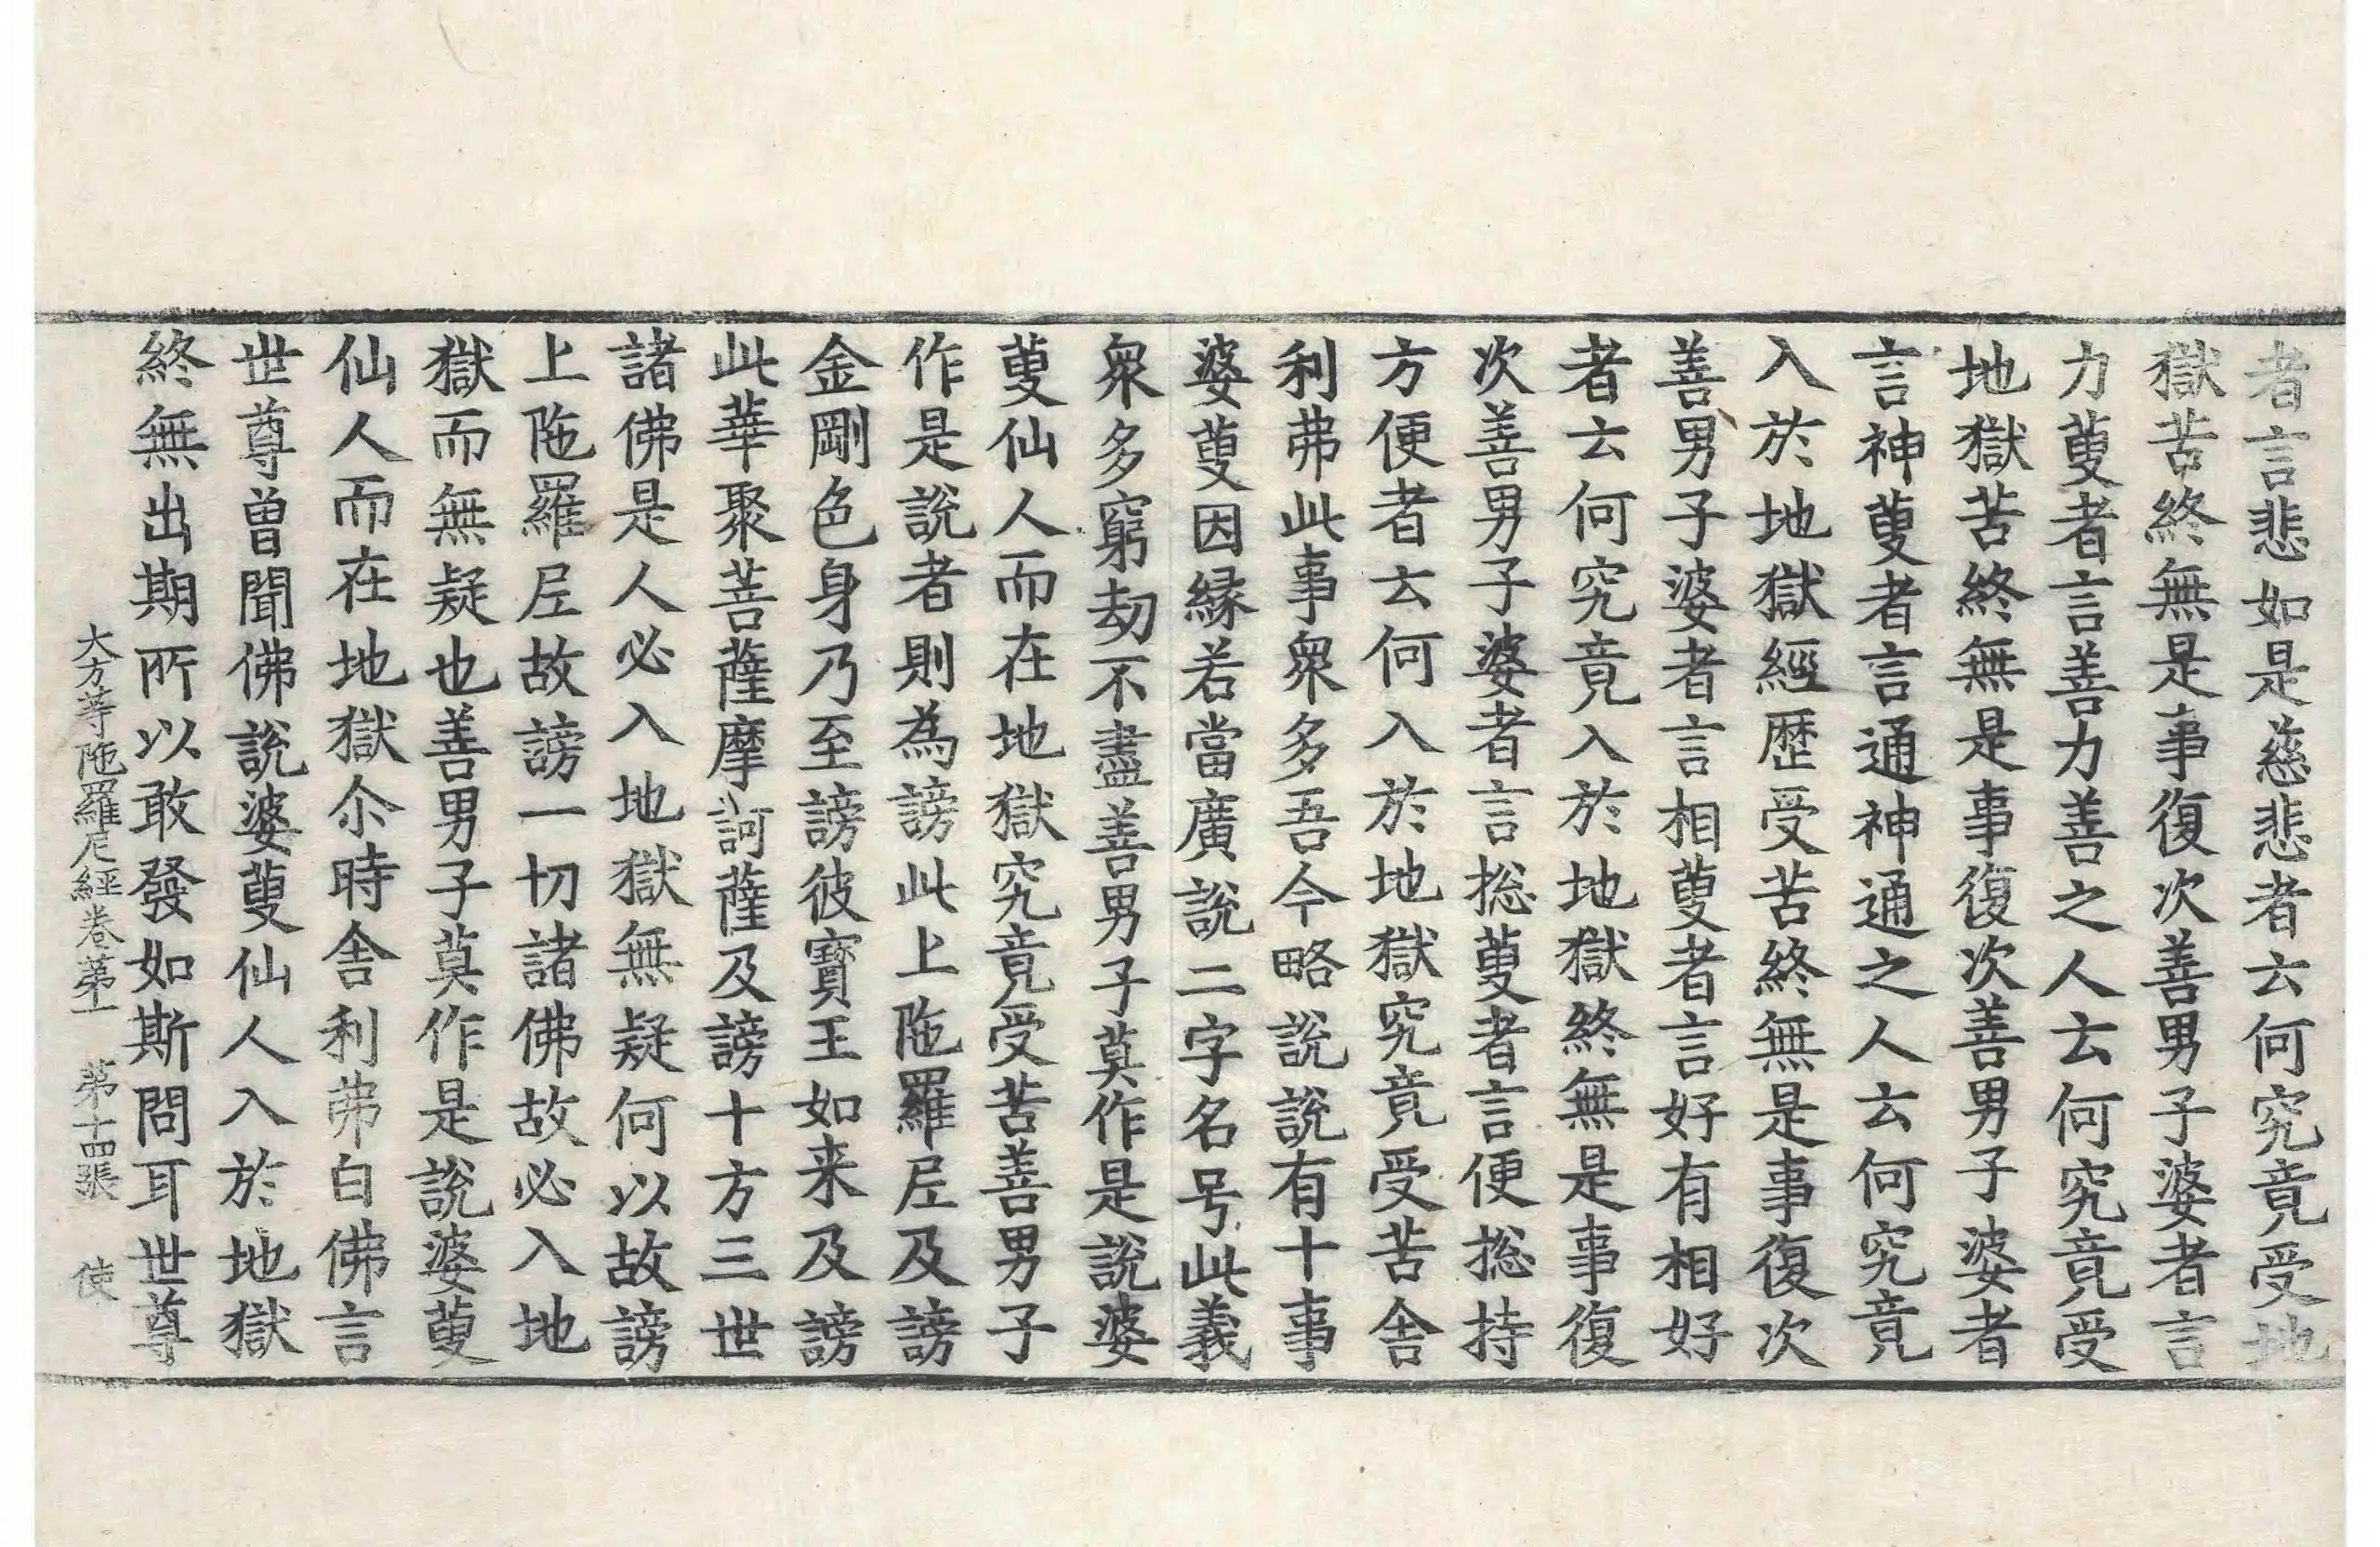 者言悲如是慈悲者云何究竟受地
獄苦終無是事復次善男子婆者言
力藪者言善力善之人云何究竟受
地獄苦終無是事復次善男子婆者
言神藪者言通神通之人云何究竟
入於地獄經歷受苦終無是事復次
善男子婆者言相藪者言好有相好
者云何究竟入於地獄終無是事復
次善男子婆者言捴藪者言便捴持
方便者云何入於地獄究竟受苦舍
利弗此事衆多吾今略說說有十事
婆藪因緣若當廣說二字名号此義
衆多窮劫不盡善男子莫作是說婆
藪仙人而在地獄究竟受苦善男子
作是說者則為謗此上陁羅尼及謗
金剛色身乃至謗彼寶王如来及謗
此華聚菩薩摩訶薩及謗十方三世
諸佛是人必入地獄無疑何以故謗
上陁羅尼故謗一切諸佛故必入地
獄而無疑也善男子莫作是說婆藪
仙人而在地獄尒時舍利弗白佛言
世尊曾聞佛說婆藪仙人入於地獄
終無出期所以敢發如斯問耳世尊
大方等陁羅尼經卷第一 第十四張 使